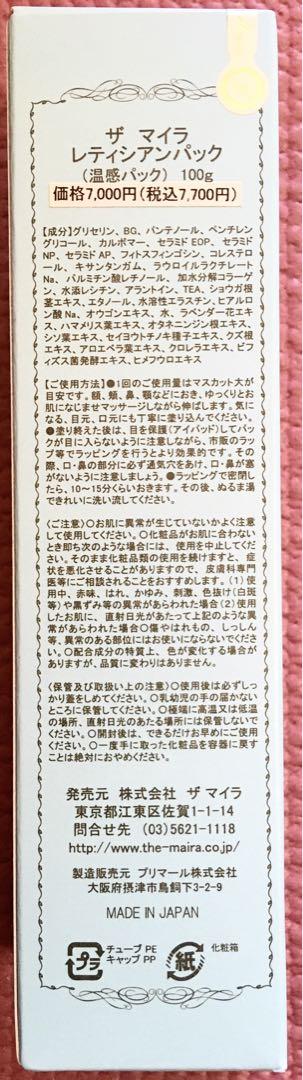 ザ マイラ
レティシアンパック
（温感パック） 100g
価格7,000円（税込7,700円）
【成分】グリセリン、BG、パンテノール、ペンチレン
グリコール、カルボマー、セラミド EOP、セラミド
NP、セラミド AP、フィトスフィンゴシン、コレステロ
ール、キサンタンガム、ラウロイルラクチレート
Na、パルミチン酸レチノール、加水分解コラーゲ
ン、水添レシチン、アラントイン、TEA、ショウガ根
茎エキス、エタノール、水溶性エラスチン、ヒアルロ
ン酸Na、オウゴンエキス、水、ラベンダー花エキ
ス、ハマメリス葉エキス、オタネニンジン根エキス、
シソ葉エキス、セイヨウトチノキ種子エキス、クズ根
エキス、アロエベラ葉エキス、クロレラエキス、ビフ
ィズス菌発酵エキス、ヒメフウロエキス
【ご使用方法】●1回のご使用量はマスカット大が
目安です。額、頬、鼻、顎などにおき、ゆっくりとお
肌になじませマッサージしながら伸ばします。気に
なる、目元、口元にも丁寧に塗り込んでください。
●塗り終えた後は、目を保護（アイパッド）してパッ
クが目に入らないように注意しながら、市販のラッ
プ等でラッピングを行うとより効果的です。その
際、口・鼻の部分に必ず通気穴をあけ、口・鼻が塞
がないように注意しましょう。●ラッピングで密閉し
たら、10～15分くらいおきます。その後、ぬるま湯
できれいに洗い流してください。
〈ご注意〉〇お肌に異常が生じていないかよく注意
して使用してください。〇化粧品がお肌に合わない
とき即ち次のような場合には、使用を中止してくだ
さい。そのまま化粧品類の使用を続けますと、症
状を悪化させることがありますので、皮膚科専門
医等にご相談されることをおすすめします。（1）使
用中、赤味、はれ、かゆみ、刺激、色抜け（白斑
等）や黒ずみ等の異常があらわれた場合（2）使用
したお肌に、直射日光があたって上記のような異
常があらわれた場合〇傷やはれもの、しっしん
等、異常のある部位にはお使いにならないでくださ
い。〇配合成分の特質上、色が変化する場合が
ありますが、品質に変わりはありません。
〈保管及び取扱い上の注意〉〇使用後は必ずしっ
かり蓋をしめてください。〇乳幼児の手の届かない
ところに保管してください。〇極端に高温又は低温
の場所、直射日光のあたる場所には保管しないで
ください。〇開封後は、できるだけお早めにご使用く
ださい。〇一度手に取った化粧品を容器に戻す
ことは絶対におやめください。
発売元 株式会社 ザ マイラ
東京都江東区佐賀1-1-14
問合せ先 （03）5621-1118
http://www.the-maira.co.jp/
製造販売元 プリマール株式会社
大阪府摂津市鳥飼下3-2-9
MADE IN JAPAN
プラ チューブ PE
キャップ PP
紙 化粧箱